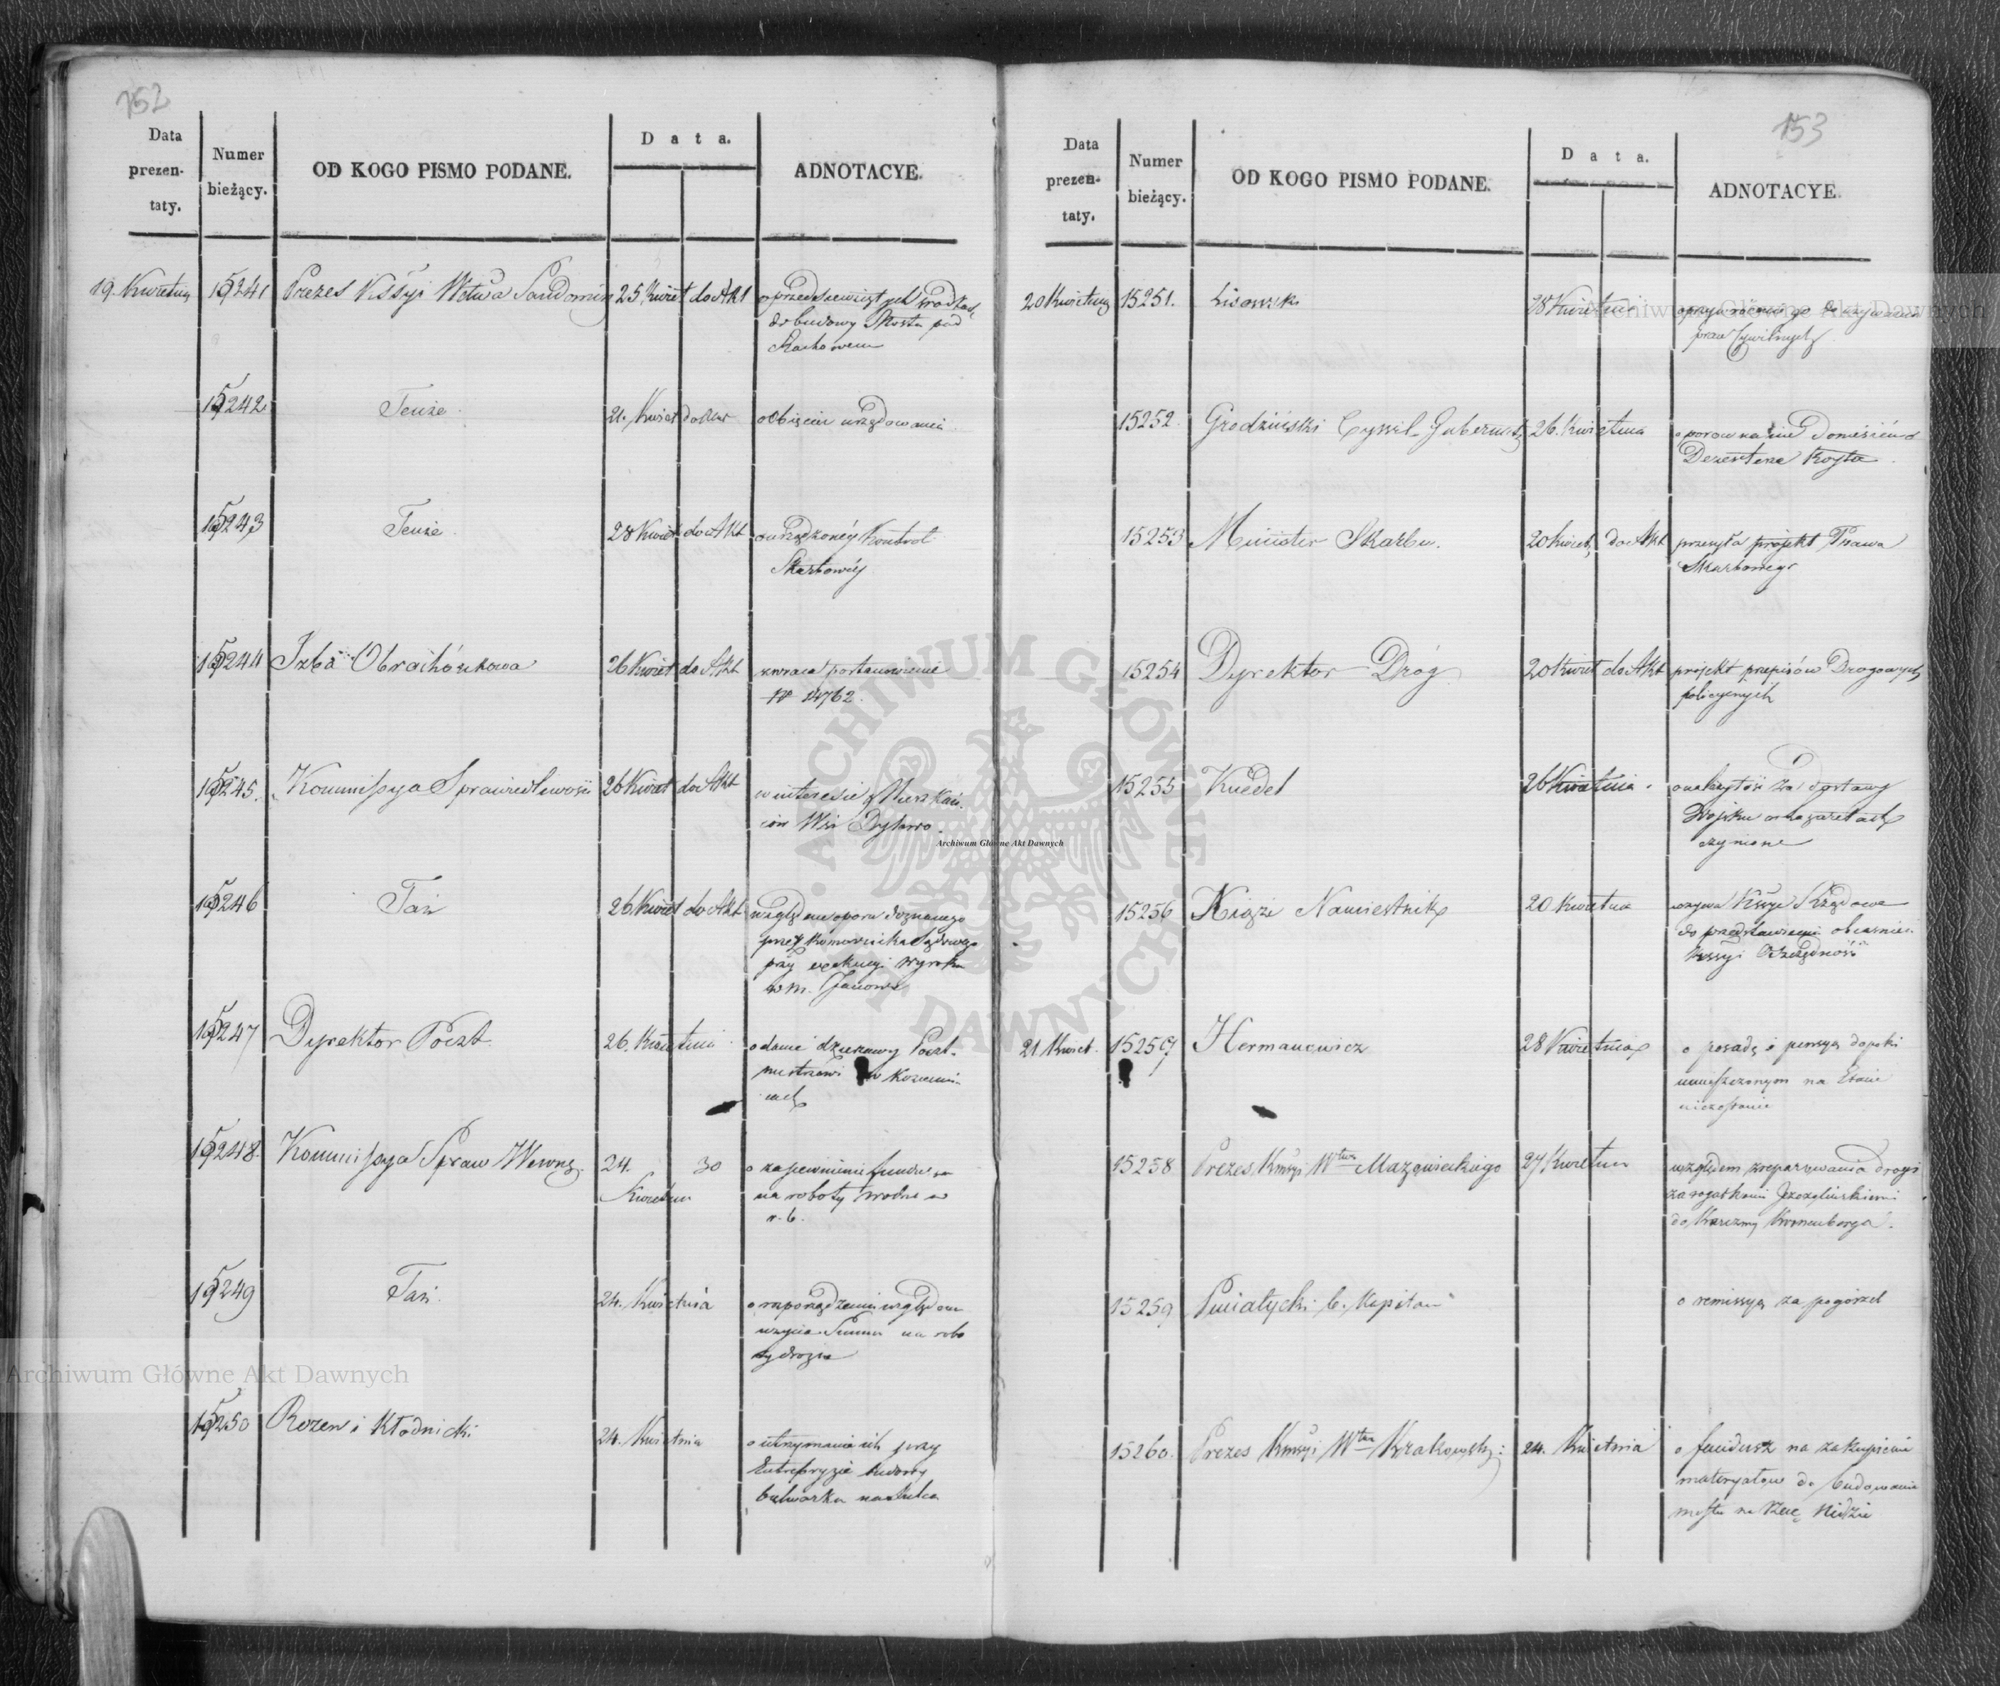 152
Data prezentaty.
Numer bieżący.
OD KOGO PISMO PODANE.
Data.
ADNOTACYE.
19. Kwietnia 15241 Prezes Kššyi Wctwa Sandomir 25 Kwiet do Akt
do budowy Mostu pod
15242 Tenże. 21. Kwiet do Akt o objęciu urzędowania
15243 Tenże. 28 Kwiet do Akt o urządzonéy Kontrol
Skarbowéy
15244 Izba Obrachónkowa 26 Kwiet do Akt zwraca postanowienie
Nr 14762.
15245. Kommissya Sprawiedliwości 26 Kwiet do Akt w interesie Mieszkań-
ców Wsi
15246 Taż 26 Kwiet do Akt względem oporu doznanego
przez Komornika Sądowego
przy exekucyi wyroku
w m. Janowie
15247 Dyrektor Poczt 26. Kwietnia o danie dzierzawy Poczt-
mistrzowi w Kozieni-
cach
15248. Kommissya Spraw Wewnę. 24. 30 o zapewnienie fundu
Kwietnia na roboty wodne w
r. b.
15249 Taż. 24. Kwietnia o rozporządzenie względem
użycia Summ na robo
ty drogowe
15250 Rozen i Kłodnicki 24. Kwietnia o utrzymanie ich przy
Entrepryzie budowy
bulwarku
153
Data prezentaty.
Numer bieżący.
OD KOGO PISMO PODANE.
Data.
ADNOTACYE.
20 Kwietnia 15251. Lisowski 28 Kwietnia o przywrócenie go do używania
praw Cywilnych
15252. Grodziński Cywil. Gubernat 26. Kwietnia o porownanie Doniesień o
Dezerterze
15253 Minister Skarbu. 20 Kwiet, do Akt przesyła projekt Prawa
Skarbowego
15254 Dyrektor Dróg 20 Kwiet do Akt projekt przepisów Drogowych
policyjnych
15255 Knedel 26 Kwietnia. o należytość za dostawy
Wojsku w lazaretach
czynione
15256 Xiąże Namiestnik 20 Kwietnia wzywa Kssye Rządowe
do przedstawienia
Kssyi
21. Kwiet. 15257 Hermanowicz 28 Kwietnia o posadę i pensyą dopóki
umieszczonym na Etacie
niezostanie
15258 Prezes Kmsyi Wtwa Mazowieckiego 27 Kwietnia względem zreparowania drogi
za rogatkami Jerozolimskiemi
do Karczmy Kronenberga.
15259 b. Kapitan o remissyą za pogórzel
15260. Prezes Kmsyi Wtwa Krakowsk: 24. Kwietnia o fundusz na zakupienie
materyałów do budowania
mostu na rzece Nidzie
ARCHIWUM GŁÓWNE AKT DAWNYCH
Archiwum Główne Akt Dawnych
Archiwum Główne Akt Dawnych
Archiwum Główne Akt Dawnych